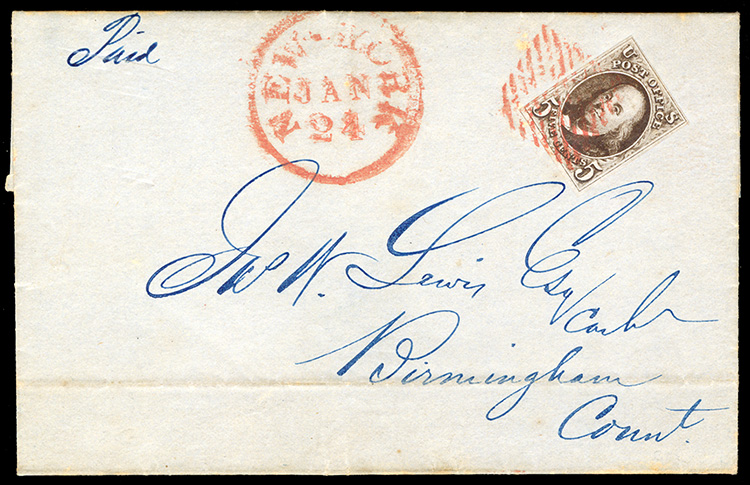 Paid
NEW-YORK
JAN
24
U S
POST OFFICE
FIVE CENTS
5 5
Jno W. Lewis Esq
Cashr
Birmingham
Connt.